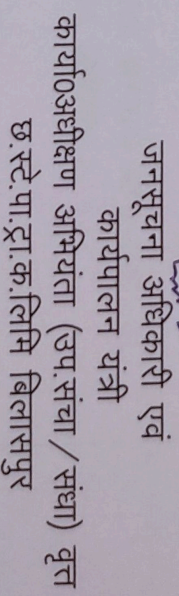 जनसूचना अधिकारी एवं
कार्यपालन यंत्री
कार्या0अधीक्षण अभियंता (उप.संचा / संधा) वृत्त
छ.स्टे.पा.ट्रा.क.लिमि बिलासपुर